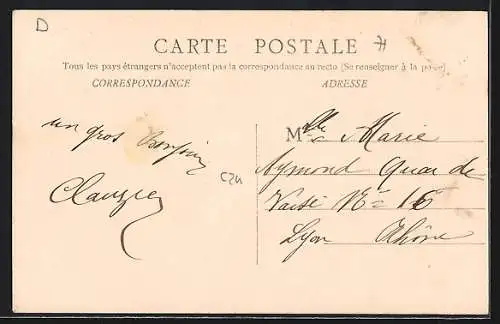 D
CARTE POSTALE
Tous les pays étrangers n'acceptent pas la correspondance au recto (Se renseigner à la poste)
CORRESPONDANCE
ADRESSE
un gros
C24
Mlle Marie
Aymond Quai de
Vaise No 16
Lyon Rhône